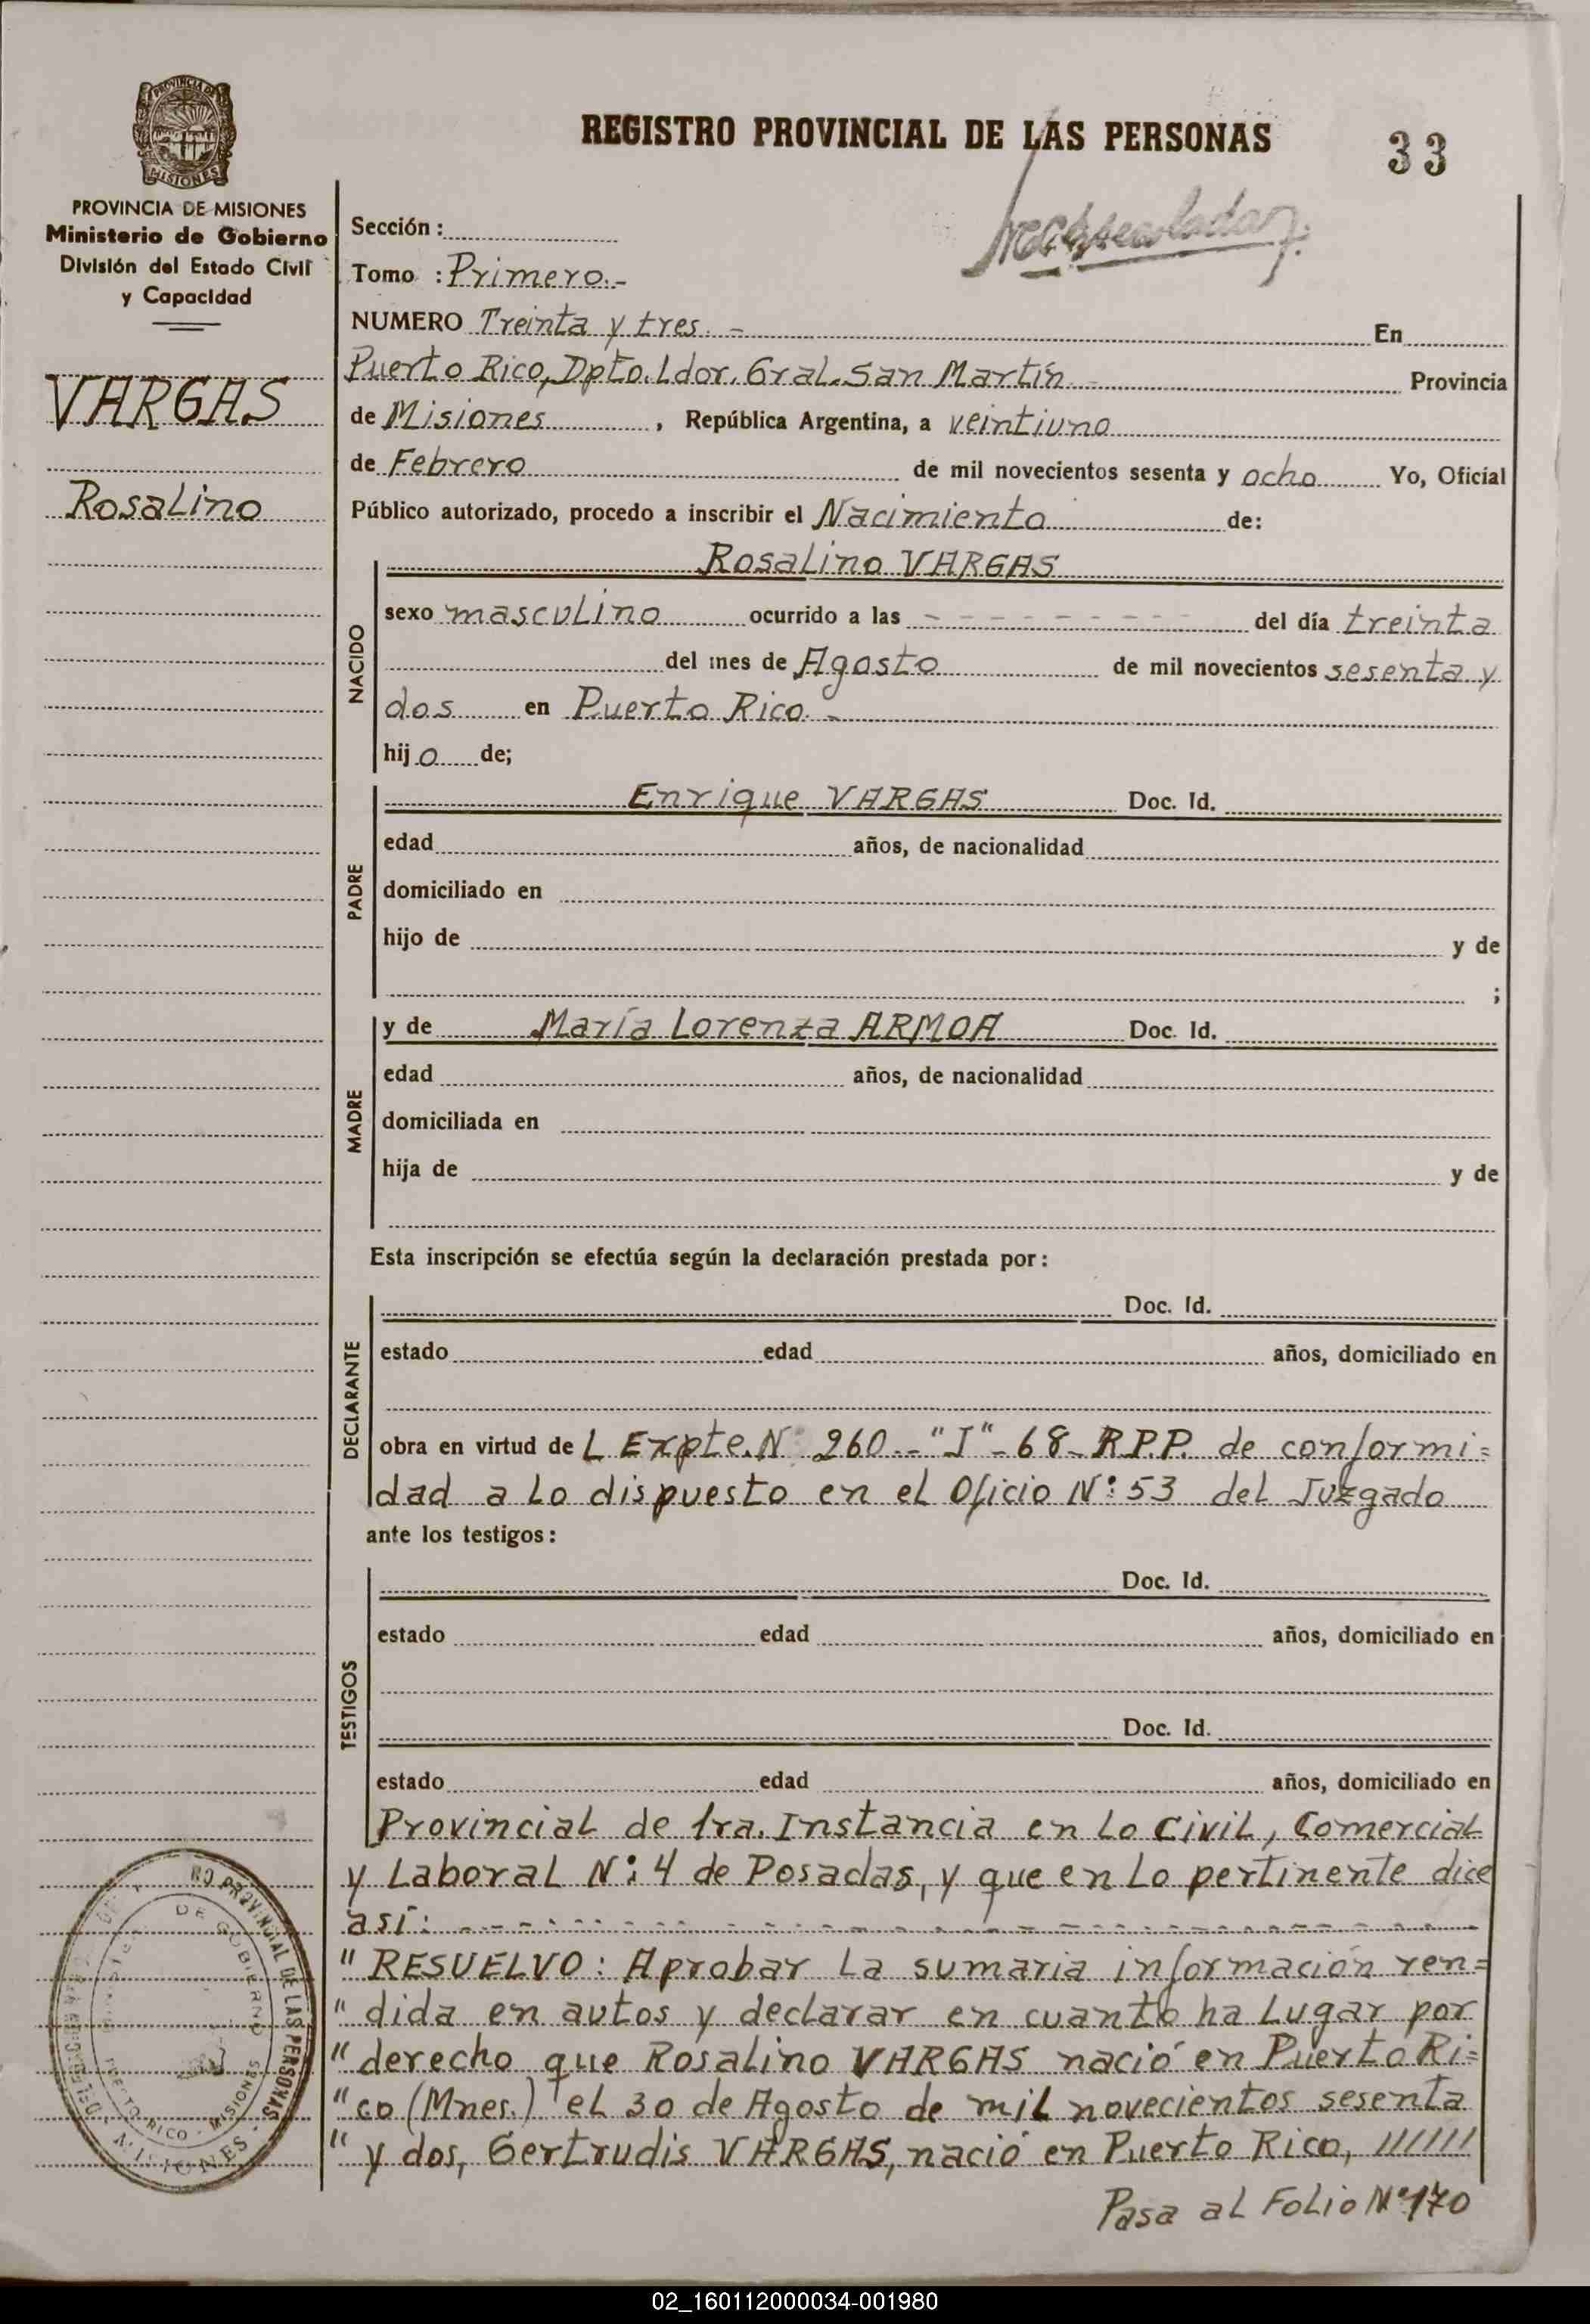 REGISTRO PROVINCIAL DE LAS PERSONAS
33
PROVINCIA DE MISIONES
MISIONES
PROVINCIA DE MISIONES
Ministerio de Gobierno
División del Estado Civil
y Capacidad
VARGAS
Rosalino
Sección :
Tomo : Primero.-
NUMERO Treinta y tres. - En
Puerto Rico, Dpto. Ldor. Gral. San Martín - Provincia
de Misiones , República Argentina, a veintiuno
de Febrero de mil novecientos sesenta y ocho Yo, Oficial
Público autorizado, procedo a inscribir el Nacimiento de:
Rosalino VARGAS
NACIDO
sexo masculino ocurrido a las - - - - - - - - - del día treinta
del mes de Agosto de mil novecientos sesenta y
dos en Puerto Rico. -
hijo de;
PADRE
Enrique VARGAS Doc. Id.
edad años, de nacionalidad
domiciliado en
hijo de y de
;
MADRE
y de María Lorenza ARMOA Doc. Id.
edad años, de nacionalidad
domiciliada en
hija de y de
Esta inscripción se efectúa según la declaración prestada por:
DECLARANTE
Doc. Id.
estado edad años, domiciliado en
obra en virtud de L Expte. N° 260.-"I"-68-R.P.P. de conformi=
dad a lo dispuesto en el Oficio N° 53 del Juzgado
ante los testigos:
TESTIGOS
Doc. Id.
estado edad años, domiciliado en
Doc. Id.
estado edad años, domiciliado en
Provincial de 1ra. Instancia en lo Civil, Comercial
y Laboral N° 4 de Posadas, y que en lo pertinente dice
así: - - - - - - - - - - - - - - - -
" RESUELVO: Aprobar la sumaria información ren=
" dida en autos y declarar en cuanto ha lugar por
" derecho que Rosalino VARGAS nació en Puerto Ri=
" co (Mnes.) el 30 de Agosto de mil novecientos sesenta
" y dos, Gertrudis VARGAS, nació en Puerto Rico, //////
Pasa al Folio N° 170
RO PROVINCIAL DE LAS PERSONAS
DE GOBIERNO
PUERTO RICO - MISIONES
MISIONES
02_160112000034-001980